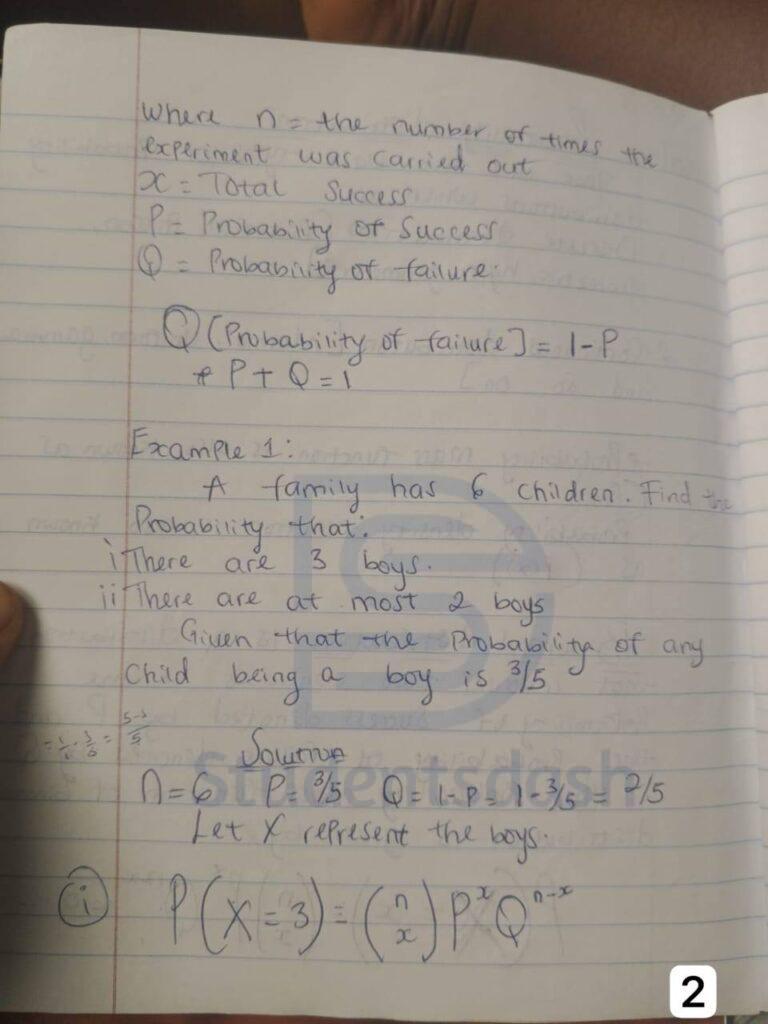 Where n = the number of times the
experiment was carried out
x = Total Success
P = Probability of Success
Q = Probability of failure.
Q [Probability of failure] = 1-P
* P + Q = 1
Example 1:
A family has 6 children. Find the
Probability that:
i There are 3 boys.
ii There are at most 2 boys
Given that the Probability of any
Child being a boy is 3/5
Solution
n=6 P=3/5 Q=1-P=1-3/5=2/5
Let X represent the boys.
(i) P(X=3)=(n x)P^x Q^n-x
Studentsdosh
2